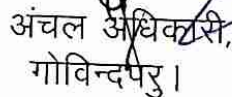 अंचल अधिकारी,
गोविन्दपुर।